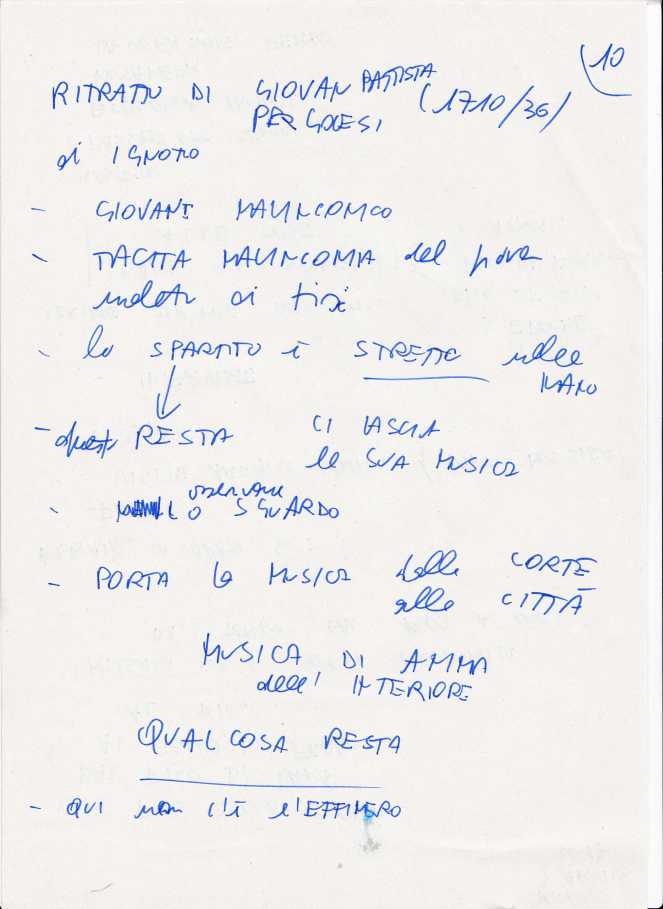 10
RITRATTO DI GIOVAN BATTISTA
PERGOLESI (1710/36)
di IGNOTO
- GIOVANE MALINCONICO
- TACITA MALINCONIA del
di tisi
- lo SPARTITO è STRETTO nella
MANO
- questo RESTA CI LASCIA
la SUA MUSICA
- osservare
LO SGUARDO
- PORTA la MUSICA dalla CORTE
alla CITTÀ
MUSICA DI ANIMA
dell'INTERIORE
QUALCOSA RESTA
- QUI non c'è l'EFFIMERO